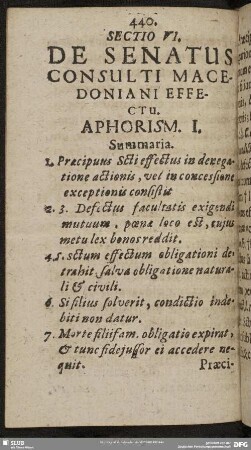 440.
SECTIO VI.
DE SENATUS
CONSULTI MACE-
DONIANI EFFE-
CTU.
APHORISM. I.
Summaria.
1. Præcipuus Scti effectus in denega-
tione actionis, vel in concessione
exceptionis consistit
2. 3. Defectus facultatis exigendi
mutuum, pœnæ loco est, cujus
metu lex bonos reddit.
4. 5. sctum effectum obligationi de-
trahit, salva obligatione natura-
li & civili.
6. Si filius solverit, condictio inde-
biti non datur.
7. Morte filiifam. obligatio expirat,
& tunc fidejussor ei accedere ne-
quit.
Præci-
SLUB
DFG